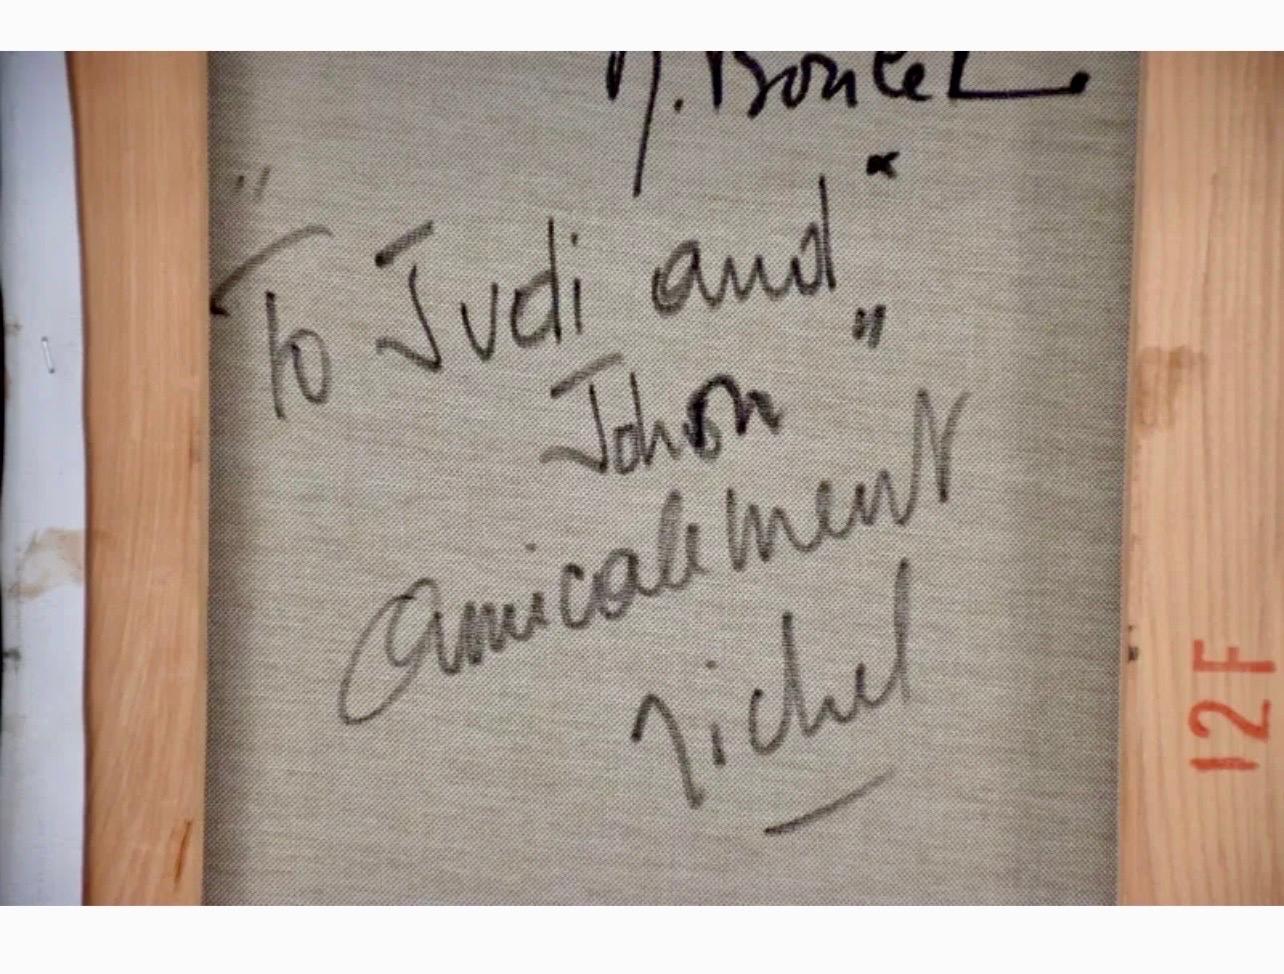 M. Boutet
"To Judi and"
"Jehon"
amicalement
Michel
12F